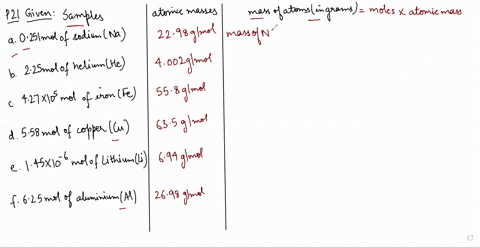 P21 Given: Samples
atomic masses
mass of atoms (in grams) = moles x atomic mass
a. 0.251mol of sodium (Na)
22.98 g/mol
mass of N
b. 2.25mol of helium (He)
4.002 g/mol
c 4.27x10⁵ mol of iron (Fe)
55.8 g/mol
d. 5.58 mol of copper (Cu)
63.5 g/mol
e. 1.45x10⁻⁶ mol of Lithium (Li)
6.94 g/mol
f. 6.25 mol of aluminium (Al)
26.98 g/mol